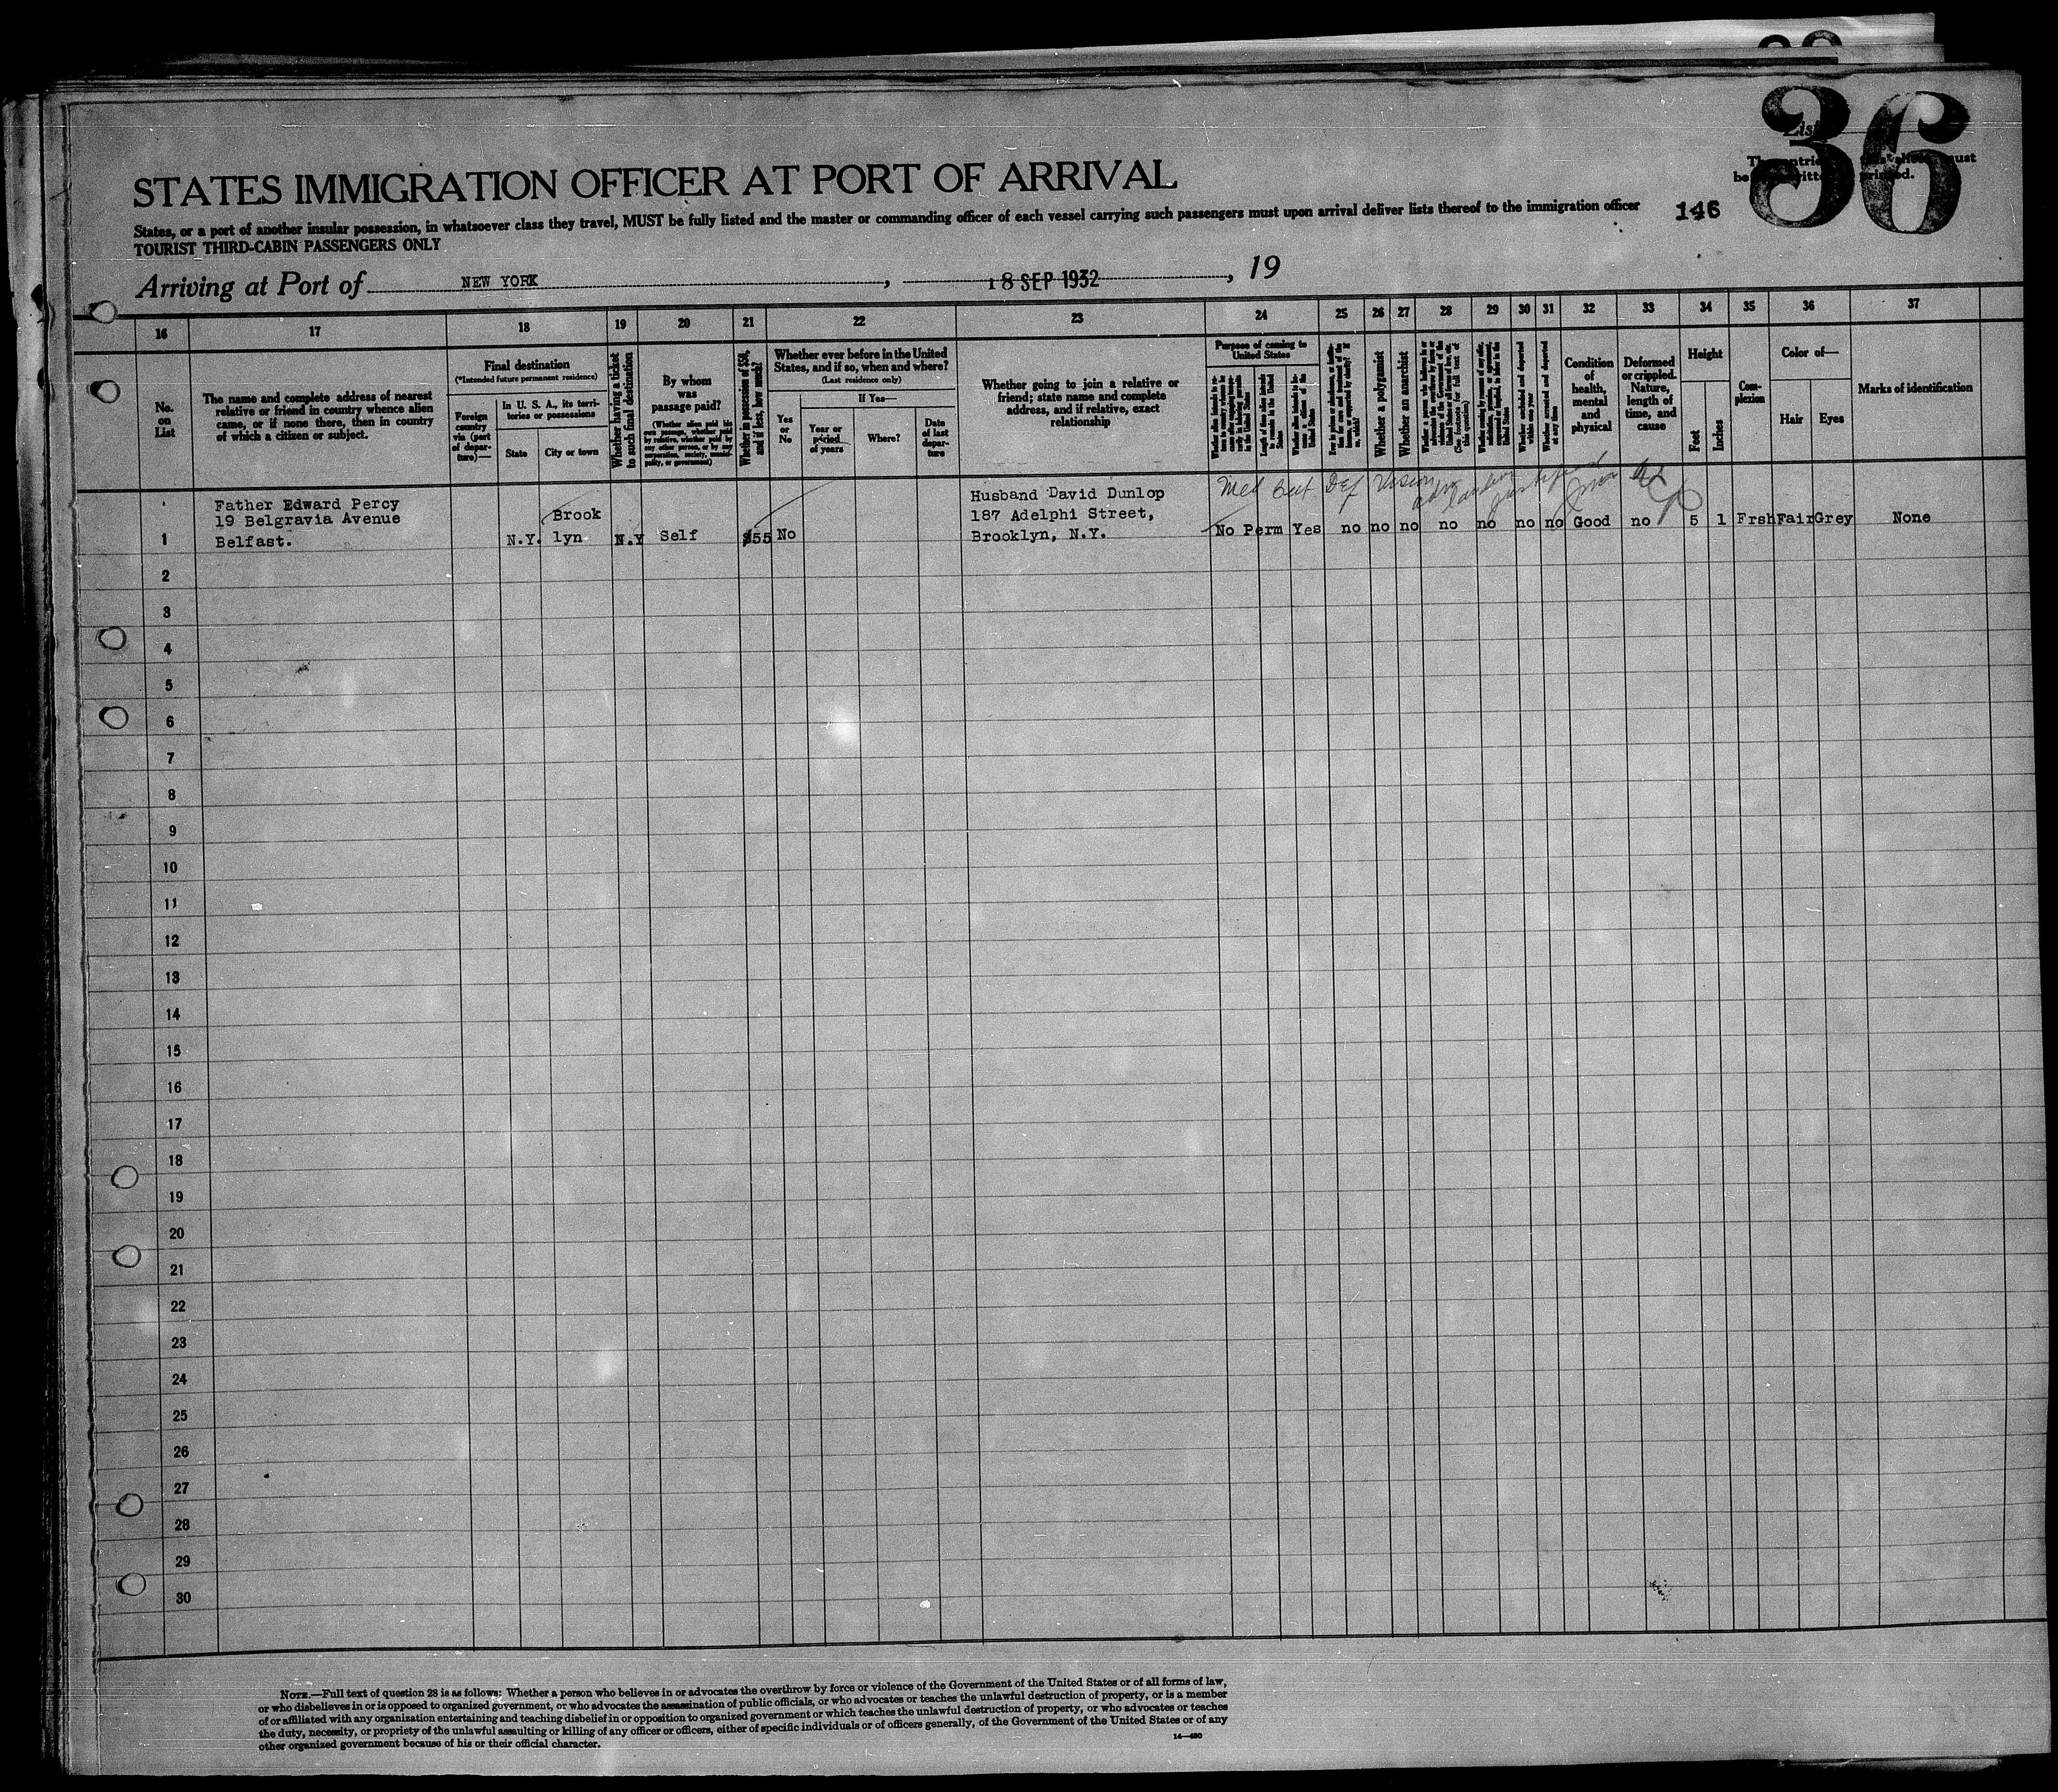 36
List
The entries on this sheet must
be typewritten or printed.
STATES IMMIGRATION OFFICER AT PORT OF ARRIVAL
States, or a port of another insular possession, in whatsoever class they travel, MUST be fully listed and the master or commanding officer of each vessel carrying such passengers must upon arrival deliver lists thereof to the immigration officer
146
TOURIST THIRD-CABIN PASSENGERS ONLY
Arriving at Port of NEW YORK, 18 SEP 1932, 19
16 17 18 19 20 21 22 23 24 25 26 27 28 29 30 31 32 33 34 35 36 37
No. on List
The name and complete address of nearest
relative or friend in country whence alien
came, or if none there, then in country
of which a citizen or subject.
Final destination
(*Intended future permanent residence)
Foreign country via (port of departure)—
In U. S. A., its terri-
tories or possessions
State
City or town
Whether having a ticket
to such final destination
By whom
was
passage paid?
(Whether alien paid his
own passage, whether paid
by relative, whether paid by
any other person, or by any
corporation, society, munici-
pality, or government)
Whether in possession of $50,
and if less, how much?
Whether ever before in the United
States, and if so, when and where?
(Last residence only)
Yes or No
If Yes—
Year or period of years
Where?
Date of last depar-ture
Whether going to join a relative or
friend; state name and complete
address, and if relative, exact
relationship
Purpose of coming to
United States
Whether alien intends to re-
turn to country whence he
came after engaging tempo-
rarily in laboring pursuits
in the United States
Length of time alien intends
to remain in the United
States
Whether alien intends to be-
come a citizen of the
United States
Whether a polygamist
Whether an anarchist
Whether excluded and deported
within one year
Whether arrested and deported
at any time
Condition
of
health,
mental
and
physical
Deformed
or crippled.
Nature,
length of
time, and
cause
Height
Feet
Inches
Com-
plexion
Color of—
Hair
Eyes
Marks of identification
Med Cert Def Vision
Father Edward Percy
19 Belgravia Avenue
Belfast.
Husband David Dunlop
187 Adelphi Street,
Brooklyn, N.Y.
1 N.Y. Brook
lyn N.Y Self $55 No No Perm Yes no no no no no no no Good no 5 1 Frsh Fair Grey None
2
3
4
5
6
7
8
9
10
11
12
13
14
15
16
17
18
19
20
21
22
23
24
25
26
27
28
29
30
NOTE.—Full text of question 28 is as follows: Whether a person who believes in or advocates the overthrow by force or violence of the Government of the United States or of all forms of law,
or who disbelieves in or is opposed to organized government, or who advocates the assassination of public officials, or who advocates or teaches the unlawful destruction of property, or is a member
of or affiliated with any organization entertaining and teaching disbelief in or opposition to organized government or which teaches the unlawful destruction of property, or who advocates or teaches
the duty, necessity, or propriety of the unlawful assaulting or killing of any officer or officers, either of specific individuals or of officers generally, of the Government of the United States or of any
other organized government because of his or their official character.
14—480